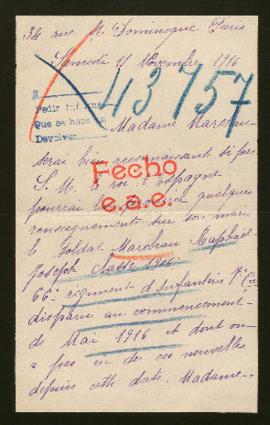 34 rue St Dominique Paris
Samedi 11 Novembre 1916
43757
Pedir informe
Que se haga
Devolver
Madame Marchau
serai bien reconnaissant si par
S. M. le roi d'Espagne
pourrai quelques
renseignements sur son mari
le Soldat Marchau Raphaël
Joseph Classe 1906
66e régiment d'infanterie 7e Cie
disparu au commencement
de Mai 1916 et dont on
a pas eu de ces nouvelles
depuis cette date. Madame
Fecho
e.a.e.